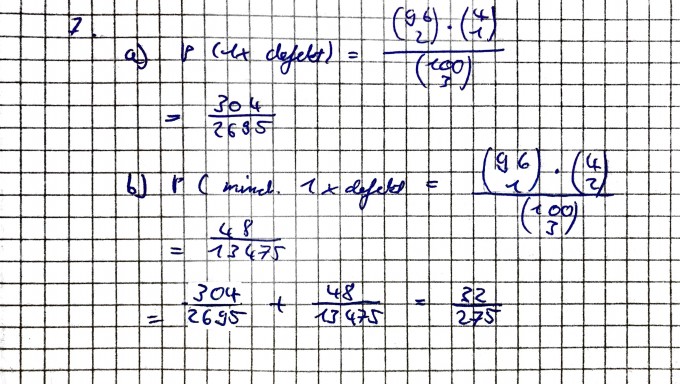 7.
a) P (1x defekt) = \frac{\binom{96}{2} \cdot \binom{4}{1}}{\binom{100}{3}}
= \frac{304}{2695}
b) P ( mind. 1 x defekt = \frac{\binom{96}{1} \cdot \binom{4}{2}}{\binom{100}{3}}
= \frac{48}{13475}
= \frac{304}{2695} + \frac{48}{13475} = \frac{32}{275}